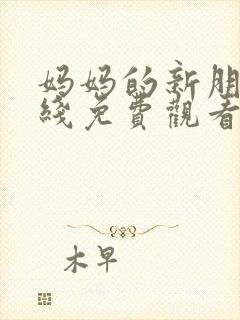 妈妈的新朋
綫免費觀看
木早